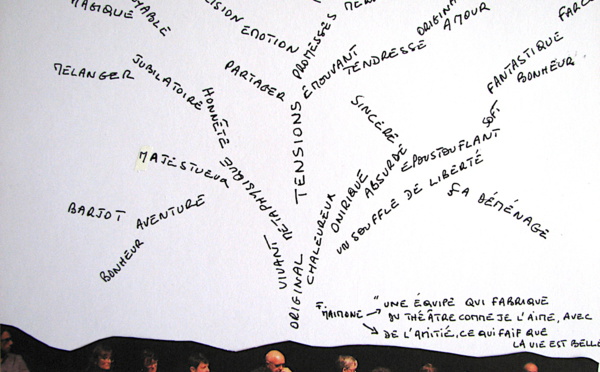 MAGIQUE
ÉMOTION
PROMESSES
AMOUR
MÉLANGER
JUBILATOIRE
PARTAGER
ÉMOUVANT
TENDRESSE
FANTASTIQUE
BONHEUR
HONNÊTE
SINCÈRE
SOFT
TENSIONS
MAJESTUEUX
MÉTAPHYSIQUE
ONIRIQUE
ABSURDE
ÉPOUSTOUFLANT
UN SOUFFLE DE LIBERTÉ
ÇA DÉMÉNAGE
BARJOT AVENTURE
BONHEUR
VIVANT
ORIGINAL
CHALEUREUX
F. MAIMONE → "UNE ÉQUIPE QUI FABRIQUE
DU THÉÂTRE COMME JE L'AIME, AVEC
DE L'AMITIÉ, CE QUI FAIT QUE
LA VIE EST BELLE